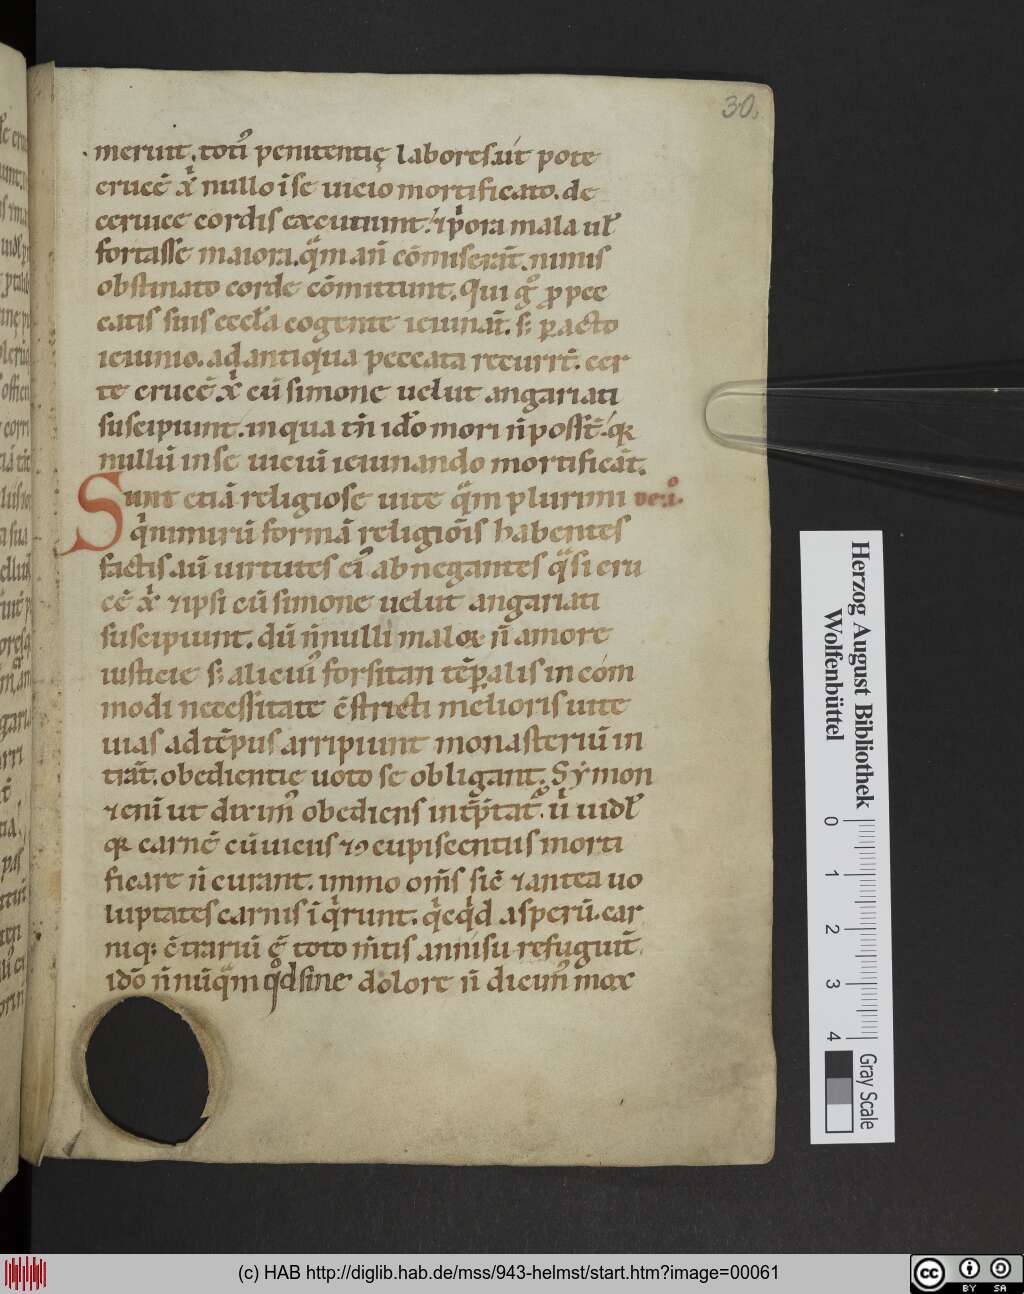 30.
meruit. toti᷒ penitentię labores. ut pote
crucē xp̄i nullo ī se uicio mortificato. de
ceruice cordis excutiunt. ⁊ p̄ora mala ul̄
fortasse maiora. qͣm an̄ cōmiserāt. nimis
obstinato corde cōmittunt. Qui gͦ ꝓ pec
catis suis eccl̄a cogente ieiunāt. s; ꝑacto
ieiunio. ad antiqua peccata recurrt̄. cer
te crucē. xp̄i cū simone uelut angariati
suscipiunt. in qua tn̄ ido mori n̄ posst̄. qꝛ
nullū in se uiciū ieiunando mortificāt.
Sunt etiā religiose uite qͣm plurimi ueri᷒.
qͥ nimirū formā religiōis habentes
factis. aū uirtutes ei᷒ abnegantes qͣsi cru
cē xp̄i ⁊ ipsi cū simone uelut angariati
suscipiunt. dū n̄nulli maloꝝ n̄ amore
iusticie s; alicui᷒ forsitan tēꝑalis incōm
modi necessitate cstricti melioris uite
uias ad tēpus arripiunt monasteriū in
trāt. obedientie uoto se obligant. Symon
⁊ enī ut dixim᷒ obediens intp̄tatᷣ. ū uidl̄
qꝛ carnē cū uiciis ⁊ ꝯcupiscentiis morti
ficare n̄ curant. immo om̄s sic ⁊ antea uo
luptates carnis īqͥrunt. qͥcqͥd asperū. car
niq; ctrariū ē toto m̄tis annisu refugiūt.
idō n̄ nūqͣm qͦd sine dolore n̄ dicim᷒ mox
Herzog August Bibliothek
Wolfenbüttel
0 1 2 3 4
Gray Scale
(c) HAB http://diglib.hab.de/mss/943-helmst/start.htm?image=00061
cc BY SA